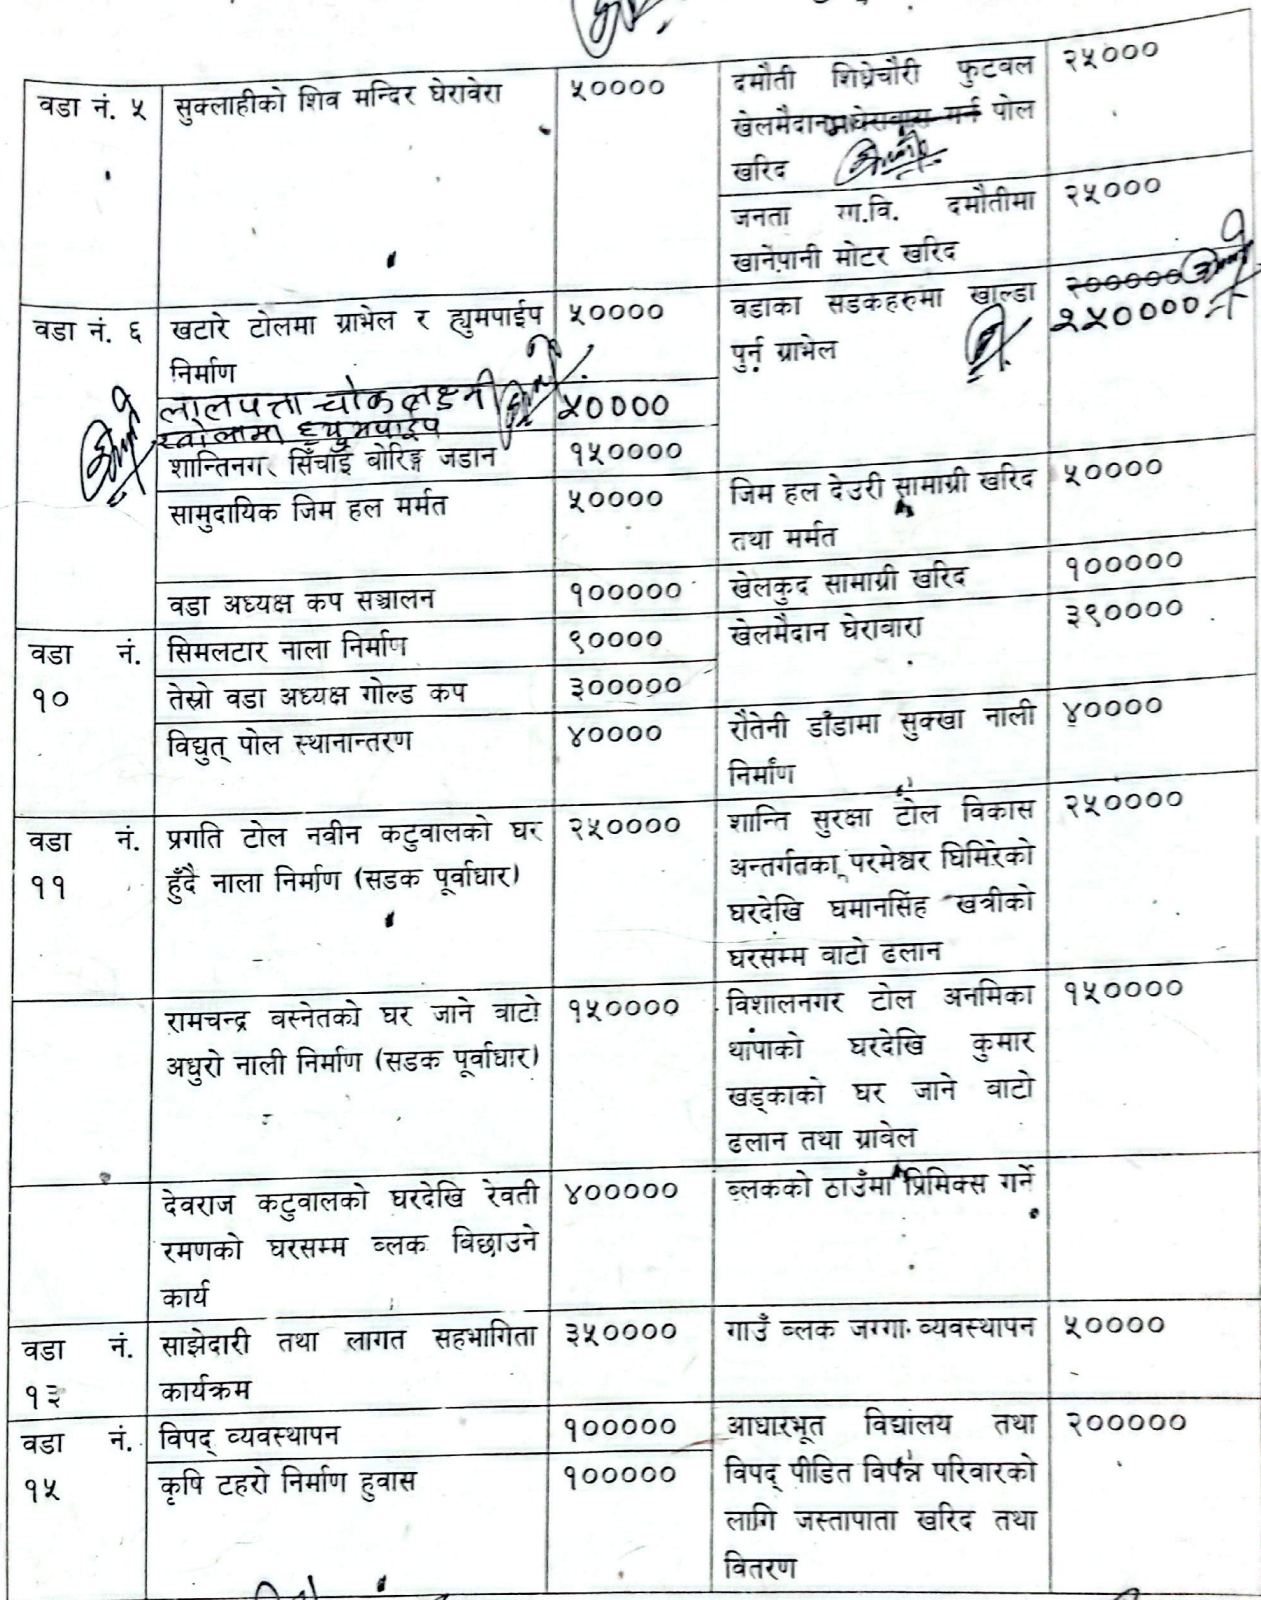 वडा नं. ५
सुक्लाहीको शिव मन्दिर घेरावेरा
५००००
दमौती शिध्रेचौरी फुटवल
खेलमैदानमा घेरावारा गर्न पोल
खरिद
२५०००
जनता रा.वि. दमौतीमा
खानेपानी मोटर खरिद
२५०००
वडा नं. ६
खटारे टोलमा ग्राभेल र ह्युमपाईप
निर्माण
५००००
वडाका सडकहरुमा खाल्डा
पुर्न ग्राभेल
२०००००
२५००००
लालपत्ता चोक लक्ष्मी
खोलामा ह्युमपाईप
५००००
शान्तिनगर सिँचाई बोरिङ्ग जडान
१५००००
सामुदायिक जिम हल मर्मत
५००००
जिम हल देउरी सामाग्री खरिद
तथा मर्मत
५००००
वडा अध्यक्ष कप सञ्चालन
१०००००
खेलकुद सामाग्री खरिद
१०००००
वडा नं.
१०
सिमलटार नाला निर्माण
९००००
खेलमैदान घेरावारा
३९००००
तेस्रो वडा अध्यक्ष गोल्ड कप
३०००००
विद्युत् पोल स्थानान्तरण
४००००
रौतेनी डाँडामा सुक्खा नाली
निर्माण
४००००
वडा नं.
११
प्रगति टोल नवीन कटुवालको घर
हुँदै नाला निर्माण (सडक पूर्वाधार)
२५००००
शान्ति सुरक्षा टोल विकास
अन्तर्गतका परमेश्वर घिमिरेको
घरदेखि घमानसिंह खत्रीको
घरसम्म वाटो ढलान
२५००००
रामचन्द्र वस्नेतको घर जाने वाटो
अधुरो नाली निर्माण (सडक पूर्वाधार)
१५००००
विशालनगर टोल अनमिका
थापाको घरदेखि कुमार
खड्काको घर जाने वाटो
ढलान तथा ग्रावेल
१५००००
देवराज कटुवालको घरदेखि रेवती
रमणको घरसम्म ब्लक विछाउने
कार्य
४०००००
ब्लकको ठाउँमा प्रिमिक्स गर्ने
वडा नं.
१३
साझेदारी तथा लागत सहभागिता
कार्यक्रम
३५००००
गाउँ ब्लक जग्गा व्यवस्थापन
५००००
वडा नं.
१५
विपद् व्यवस्थापन
१०००००
आधारभूत विद्यालय तथा
विपद् पीडित विपन्न परिवारको
लागि जस्तापाता खरिद तथा
वितरण
२०००००
कृषि टहरो निर्माण हुवास
१०००००